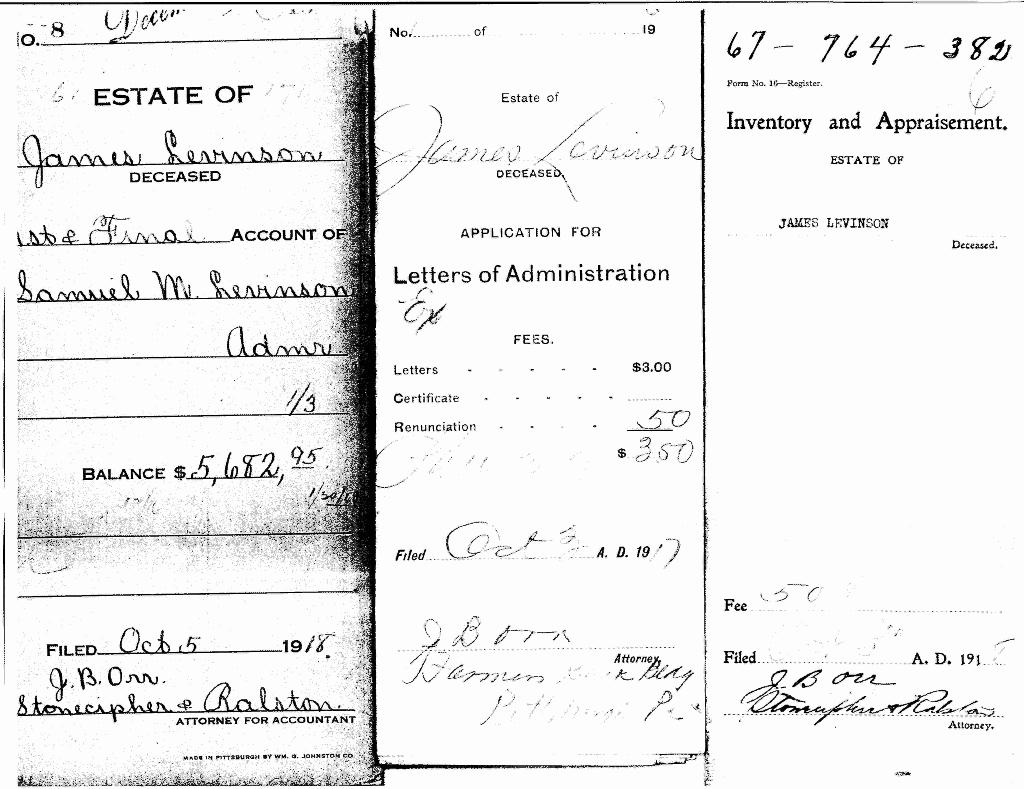 O. 8 Decem
ESTATE OF
James Levinson
DECEASED
1st & Final ACCOUNT OF
Samuel M. Levinson
Admr
1/3
BALANCE $5,682,95
FILED Oct 5 1918.
J. B. Orr.
Stonecipher & Ralston.
ATTORNEY FOR ACCOUNTANT
MADE IN PITTSBURGH BY WM. G. JOHNSTON CO.
No. of 19
Estate of
James Levinson
DECEASED,
APPLICATION FOR
Letters of Administration
Ex
FEES.
Letters - - - - - $3.00
Certificate - - - - -
Renunciation - - - - 50
$ 350
Filed Oct 3 A. D. 1917
J B Orr
Attorney,
Bldg
Pa
67 - 764 - 382
Form No. 16—Register.
6
Inventory and Appraisement.
ESTATE OF
JAMES LEVINSON
Deceased.
Fee 50
Filed A. D. 191
J B Orr
Stonecipher & Ralston
Attorney.